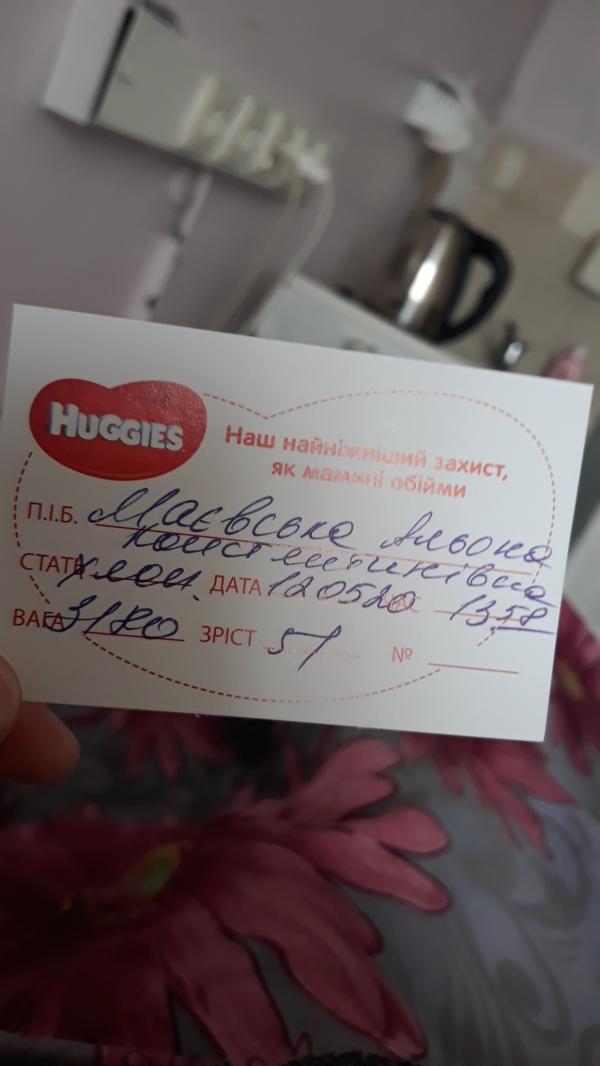 HUGGIES
Наш найніжніший захист,
як мамині обійми
П.І.Б. Маєвська Альона
Константинівна
СТАТЬ хлоп. ДАТА 120520 1358
ВАГА 3180 ЗРІСТ 51 №